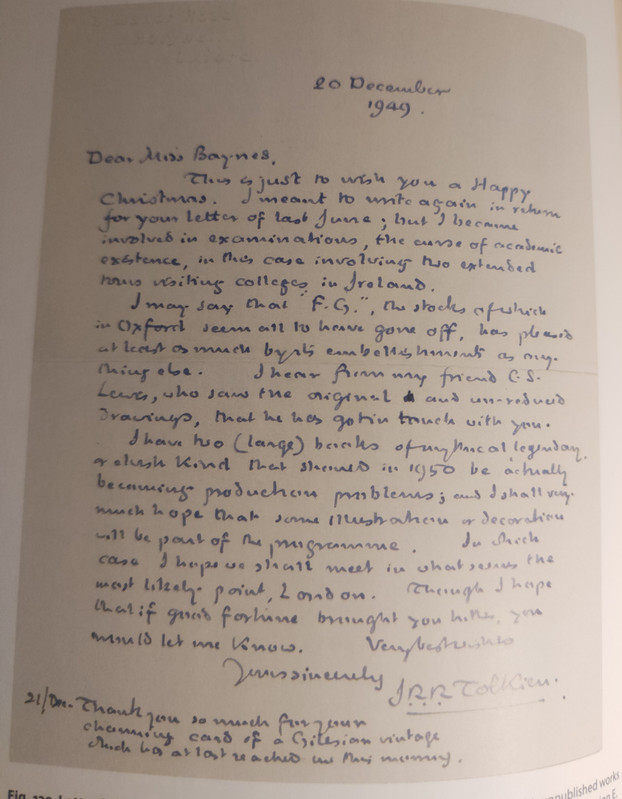 20 December
1949.
Dear Miss Baynes,
This is just to wish you a Happy
Christmas. I meant to write again in return
for your letter of last June; but I became
involved in examinations, the curse of academic
existence, in this case involving two extended
tours visiting colleges in Ireland.
I may say that "F.G.", the stocks of which
in Oxford seem all to have gone off, has pleased
at least as much by its embellishments as any-
thing else. I hear from my friend C.S.
Lewis, who saw the original and un-reduced
drawings, that he has got in touch with you.
I have two (large) books of mythical legendary
or elvish kind that should in 1950 be actually
becoming production problems; and I shall very
much hope that some illustration or decoration
will be part of the programme. In which
case I hope we shall meet in what seems the
most likely point, London. Though I hope
that if good fortune brought you hither, you
would let me know. Very best wishes
Yours sincerely
J.R.R. Tolkien.
21/Dec. Thank you so much for your
charming card of a Gilesian vintage
which has at last reached me this morning.
published works